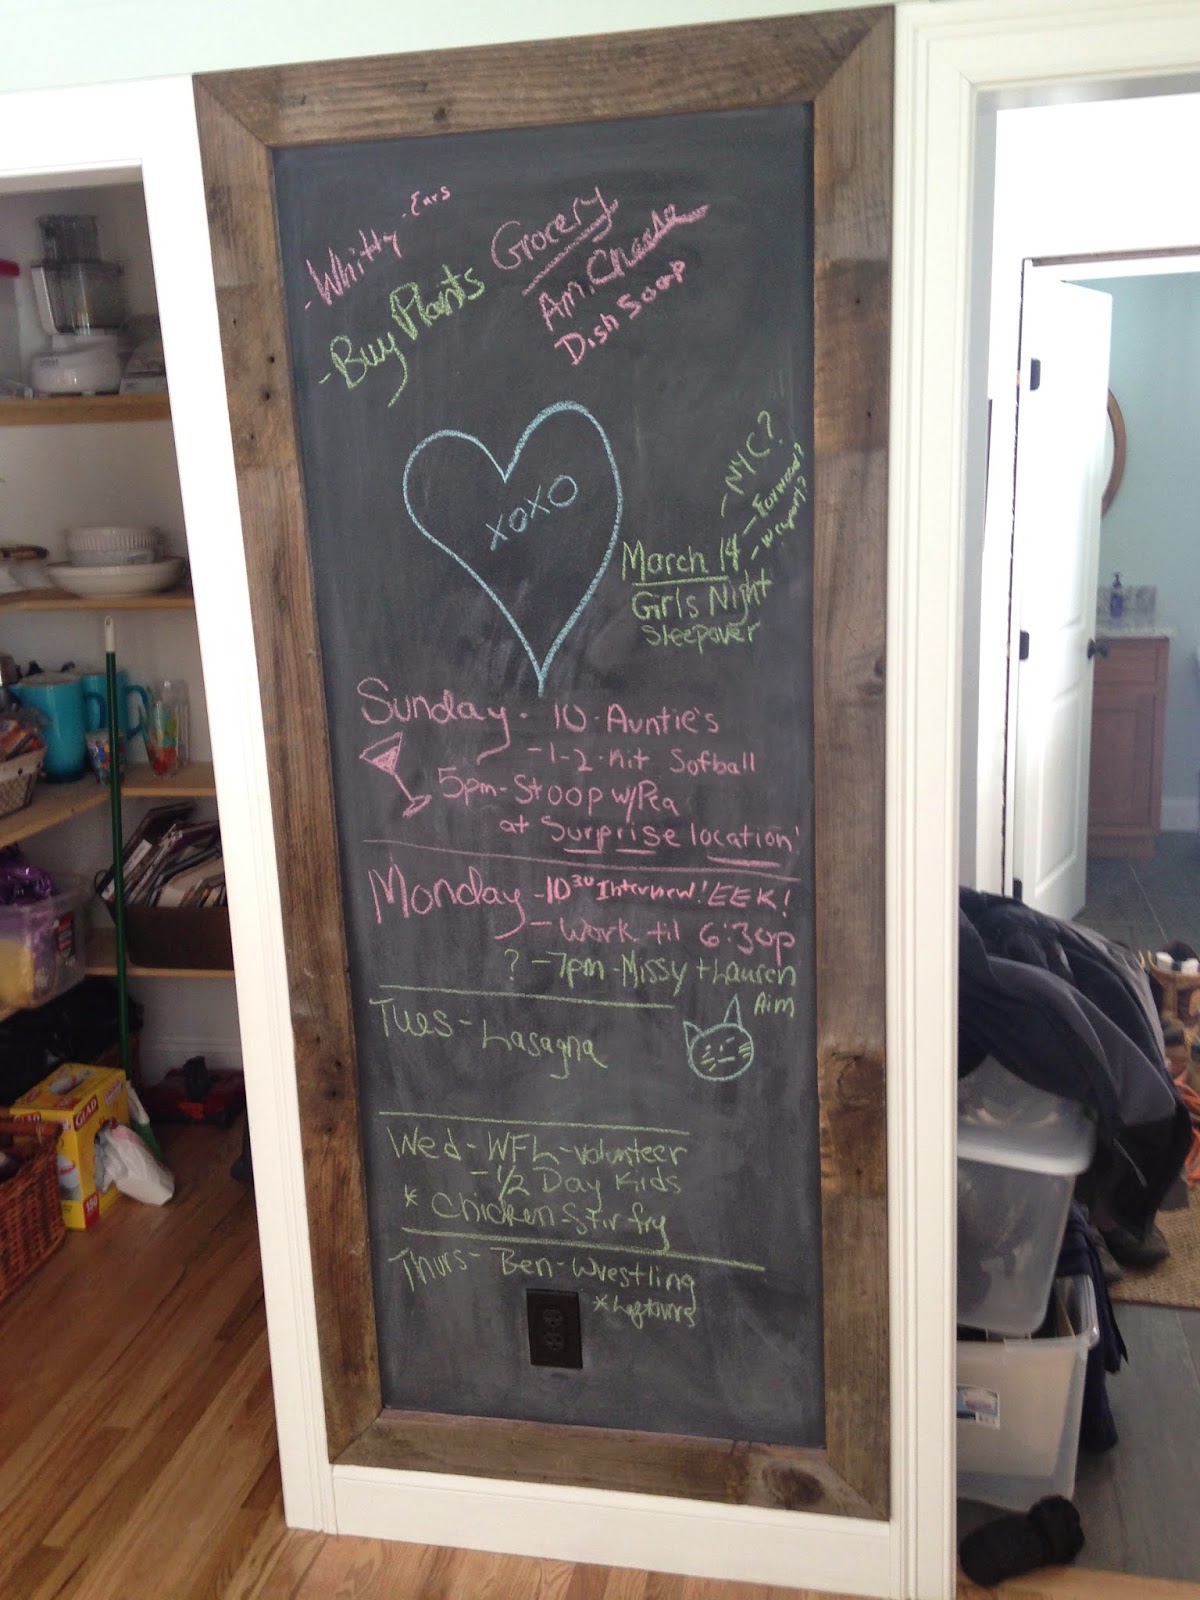 - Whitty - Ears
- Buy Plants
Grocery
Am. Cheese
Dish Soap
XOXO
- NYC?
- Foxwoods?
- Newport?
March 14
Girls Night
Sleepover
Sunday - 10 - Auntie's
- 1-2 - hit Sofball
5pm - Stoop w/Pea
at Surprise location!
Monday - 10 30 Interview! EEK!
- Work til 6:30p
? - 7pm - Missy + Lauren
Aim
Tues - Lasagna
Wed - WFL - volunteer
- 1/2 Day Kids
* Chicken Stir fry
Thurs - Ben - Wrestling
* Leftovers
GLAD
GLAD
150